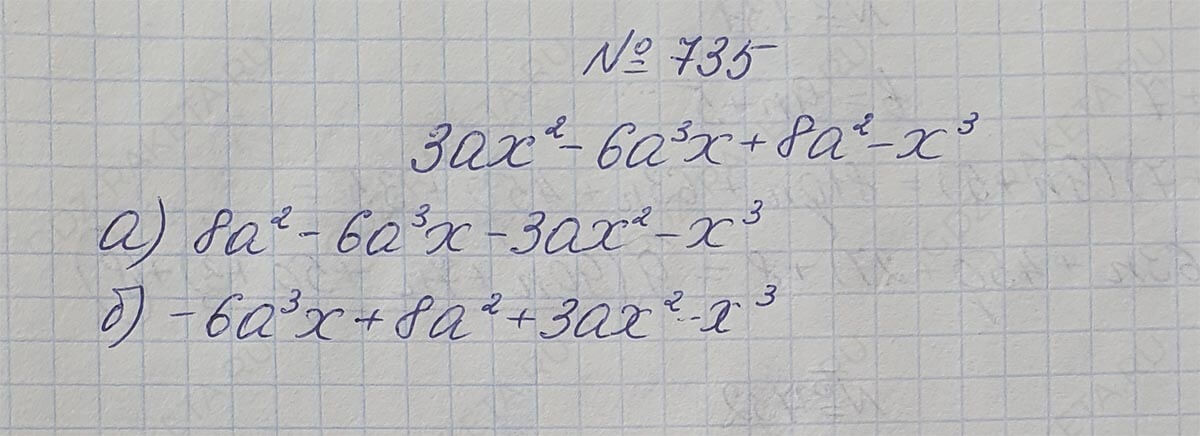 № 735
3ax² - 6a³x + 8a² - x³
а) 8a² - 6a³x - 3ax² - x³
б) - 6a³x + 8a² + 3ax² - x³